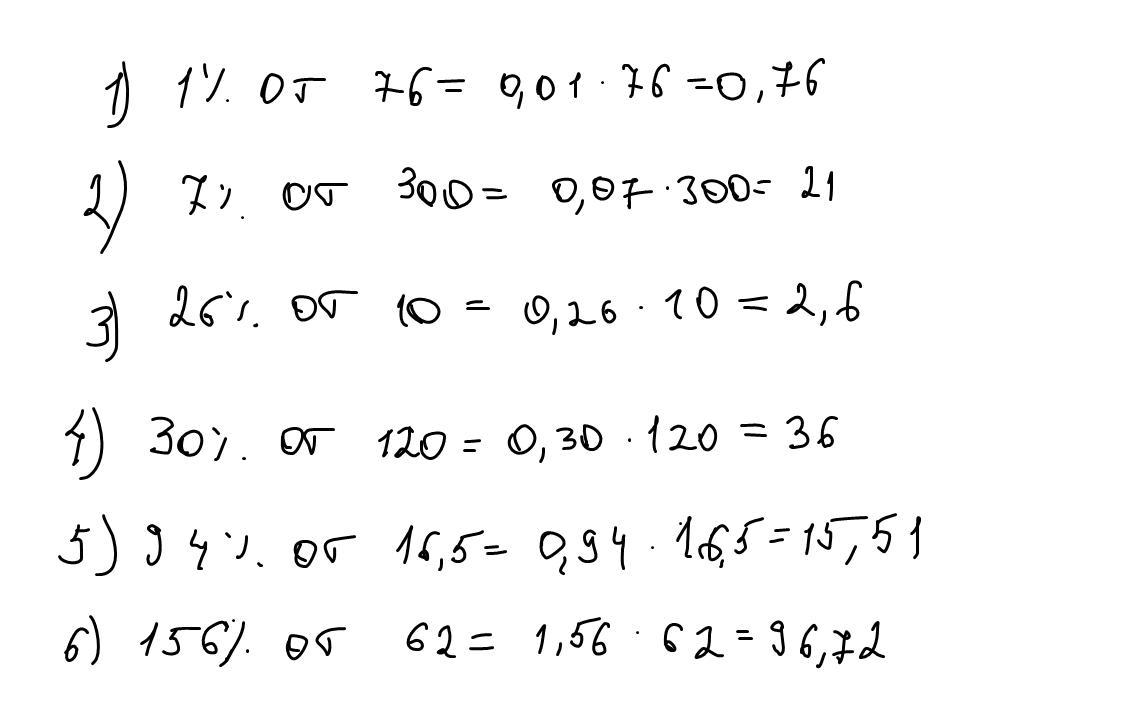 1) 1% от 76 = 0,01 · 76 = 0,76
2) 7% от 300 = 0,07 · 300 = 21
3) 26% от 10 = 0,26 · 10 = 2,6
4) 30% от 120 = 0,30 · 120 = 36
5) 94% от 16,5 = 0,94 · 16,5 = 15,51
6) 156% от 62 = 1,56 · 62 = 96,72